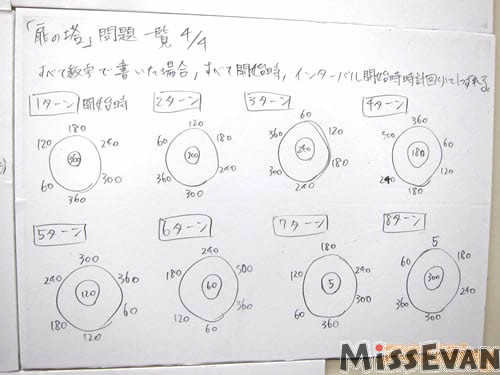 「扉の塔」問題一覧 4/4
すべて数字で書いた場合,すべて開始時,インターバル開始時時計回りに1つずれる。
1ターン 開始時
180
120 240
300
60 300
360
2ターン
120
60 180
300
360 240
300
3ターン
60
360 120
240
300 180
240
4ターン
360
300 60
180
240 120
180
5ターン
300
240 360
120
180 60
120
6ターン
240
180 300
60
120 360
60
7ターン
180
120
5
60 300
360
8ターン
5
60 180
300
360 240
300
MISSEVAN